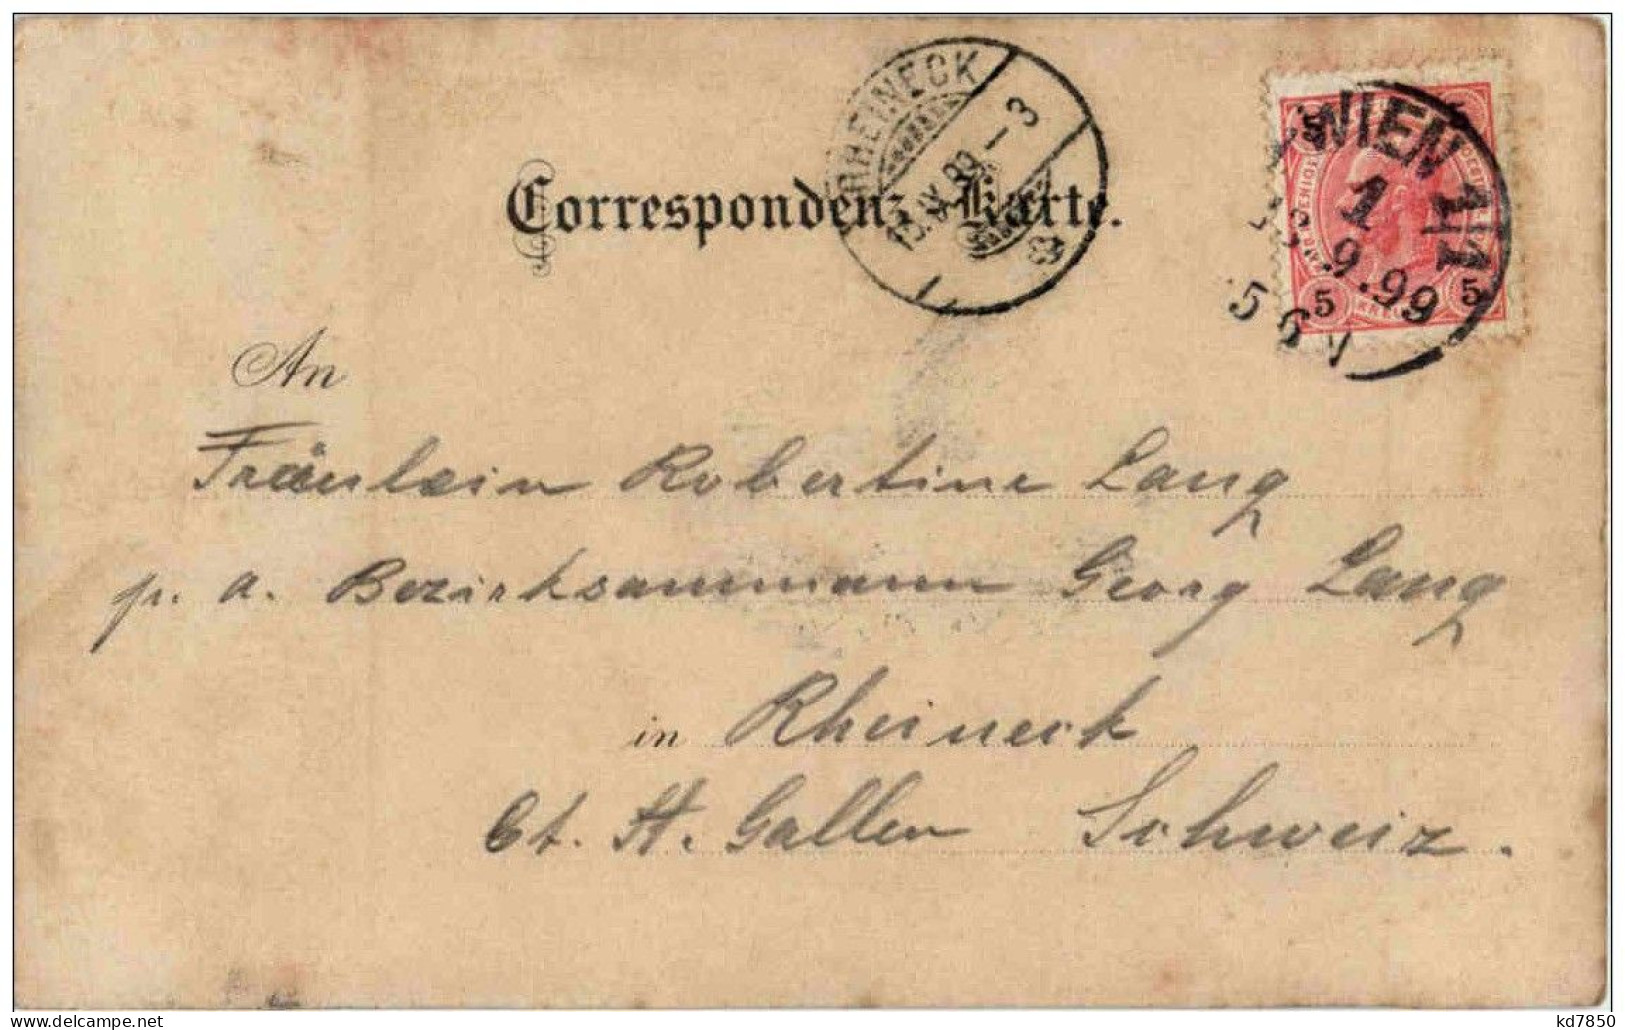 Correspondenz-Karte.
RHEINECK
–3
WIEN 1/1
1
9.99
5
5
5
5 6 N
An
Fräulein Robertine Lang
p. a. Bezirksammann Georg Lang
in Rheineck
Ct. St. Gallen Schweiz.
kd7850